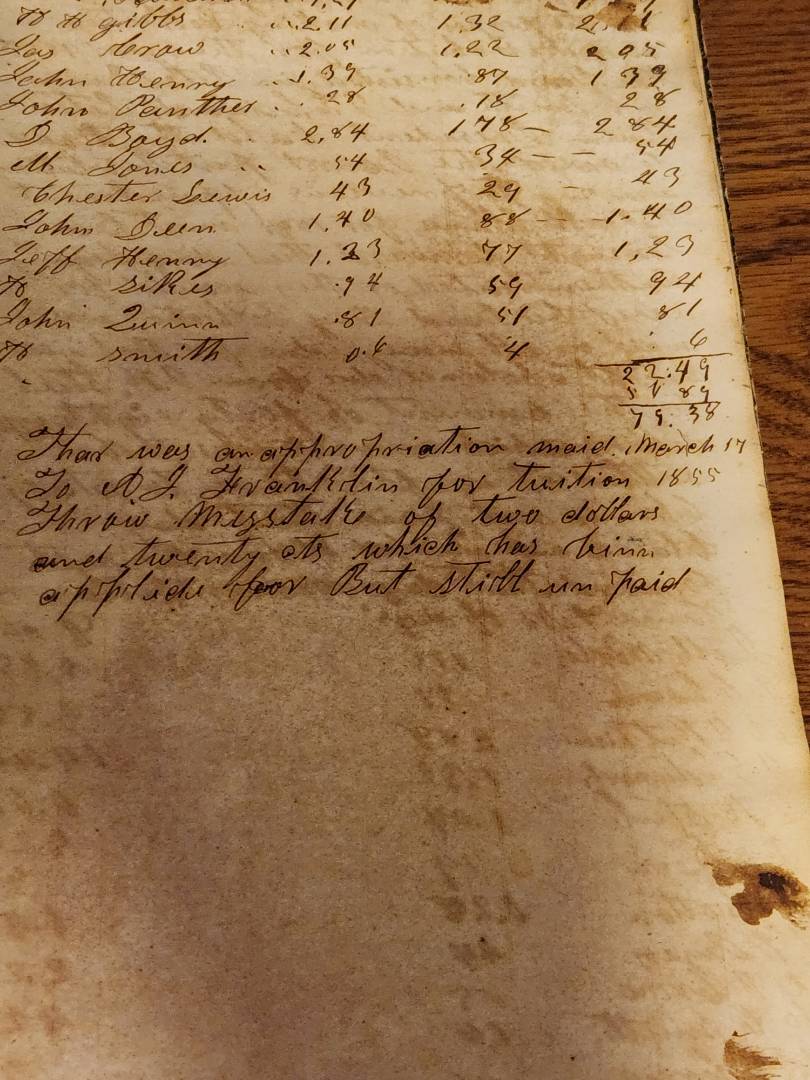 H H gibbs ..2.11 1.32 2.11
Jas Crow ..2.05 1.22 2 05
John Henry .1.39 .87 1 39
John Panther .. 28 .18 28
D Boyd. . 2,84 178 — 2 84
M Jones .. 54 34 — — 54
Chester Lewis 43 29 - 43
John Deen 1,40 88 — 1.40
Jeff Henry 1.23 77 1,23
H sikes .94 59 94
John Quinn .81 51 81
H smith 0.6 4 . 6
22.49
89
79.38
Thar was an appropriation maid. March 17
To A J. Franklin for tuition 1855
Throw Misstake of two dollars
and twenty cts which has binn
applide foor But still un paid